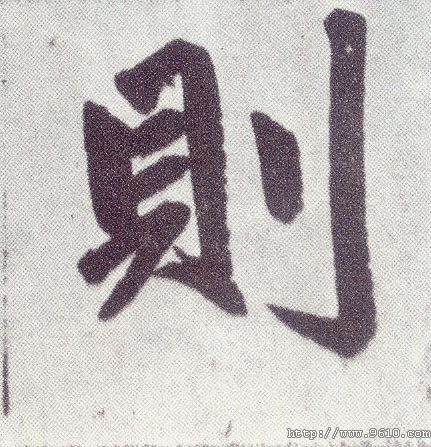 則
http://www.9610.com